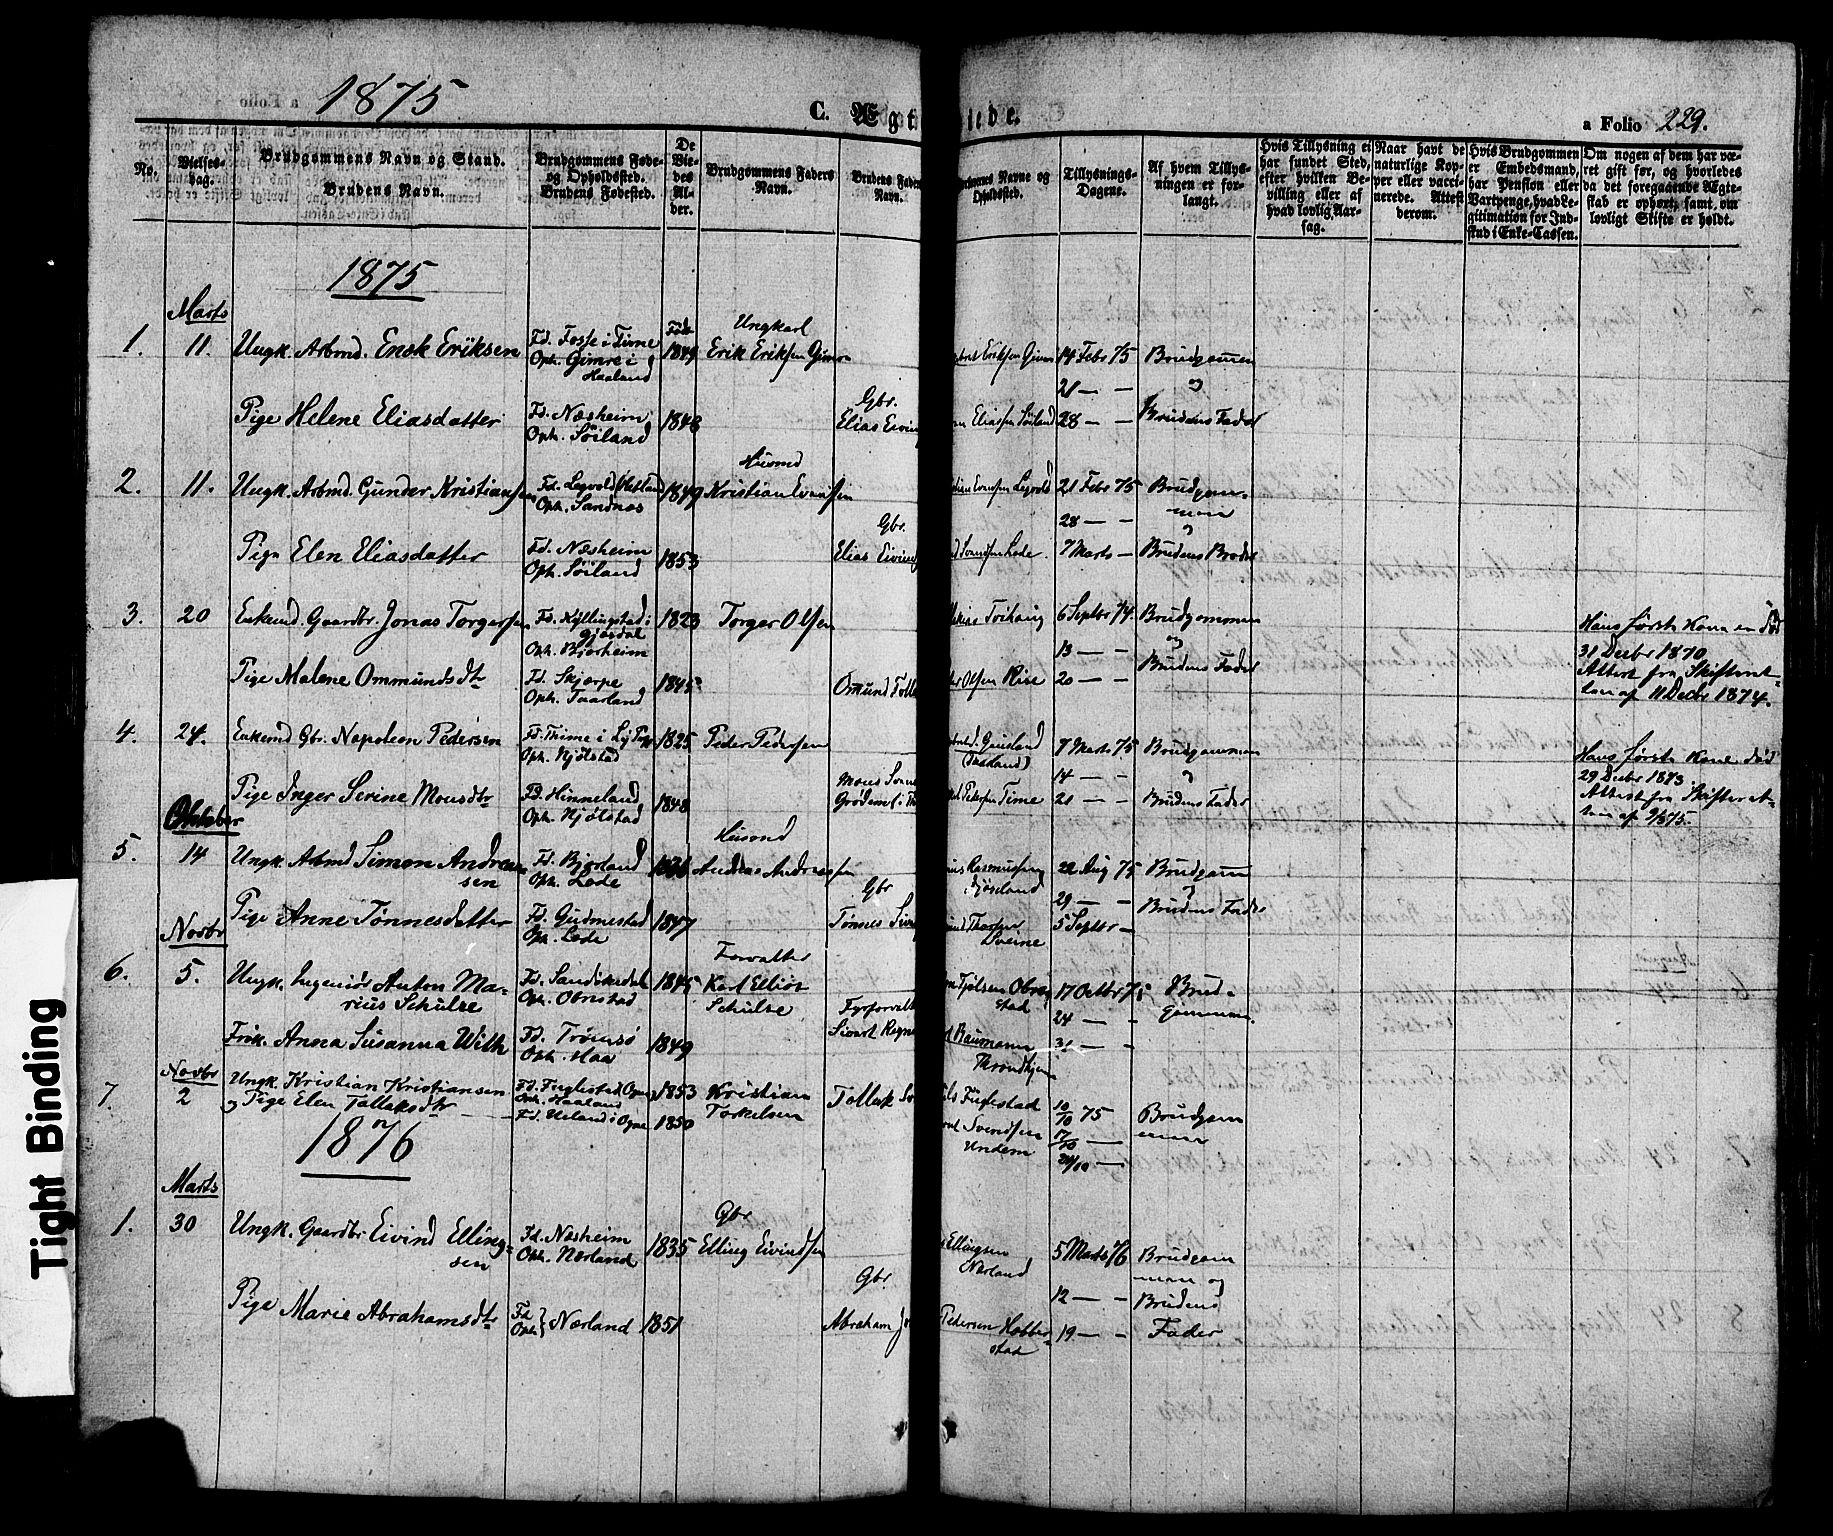 1875
C. Ægt lede.
a Folio 229.
No.
Vielses-
dag.
Brudgommens Navn og Stand.
Brudens Navn.
Brudgommens Føde-
og Opholdssted.
Brudens Fødested.
De
Vie-
des
Al-
der.
Brudgommens Faders
Navn.
Brudens Faders
Navn.
Navne og
Opholdssted.
Tillysnings-
Dagene.
Af hvem Tillys-
ningen er for-
langt.
Hvis Tillysning ei
har fundet Sted,
efter hvilken Be-
villing eller af
hvad lovlig Aar-
sag.
Naar havt de
naturlige Kop-
per eller vacci-
nerede. Attest
derom.
Hvis Brudgommen
er Embedsmand,
har Pension eller
Vartpenge, hvad Le-
gitimation for Ind-
skud i Enke-Cassen.
Om nogen af dem har væ-
ret gift før, og hvorledes
da det foregaaende Ægte-
skab er ophørt, samt, om
lovligt Skifte er holdt.
1875
Marts
1. 11. Ungk. Arbmd. Enok Eriksen
Fd. Fosse i Time
Oph. Gimre i
Haaland
Fød
1849
Ungkarl
Erik Eriksen Gimre
Eriksen Gimre
14 Febr 75
21 — —
28 — —
Brudgommen
og
Brudens Fader
Pige Helene Eliasdatter
Fd. Næsheim
Oph. Söiland
1848
Gbr.
Elias Eivind
Eliassen Söiland
2. 11. Ungk. Arbmd. Gunder Kristiansen
Oph. Sandnæs
1849
Husmd
Kristian Evensen
21 Febr 75
28 — —
7 Marts —
Brudgom-
men
og
Brudens Broder
Pige Elen Eliasdatter
Fd. Næsheim
Oph. Söiland
1853
Gbr.
Elias Eivind
Svendsen Lode.
3. 20 Enkemd. Gaardbr. Jonas Torgersen
Fd. Kyllingstad i
Gjæsdal
Oph. Bjorheim
1823
Torger Olsen
6 Septbr 74.
13 — —
20 — —
Brudgommen
og
Brudens Fader
Hans første Kone er død
31 Decbr 1870
Attest fra Skifteret-
ten af 11 Decbr 1874.
Pige Malene Ommundsdtr
Fd. Skjærpe
Oph. Taarland
1845
Omund
Olsen Rise
4. 24. Enkemd Gbr. Napoleon Pedersen
Fd. Thime i
Oph. Njølstad
1825
Peder Pedersen
7 Marts 75
14 — —
21 — —
Brudgommen
og
Brudens Fader
Hans første Kone død
29 Decbr 1873
Attest fra Skifteret-
ten af
Pige Inger Serine Monsdtr
Fd. Hinneland
Oph. Njølstad
1848
Mons
Pedersen Time
Oktober
5. 14 Ungk. Arbmd Simon Andrea-
sen
Fd. Bjorland
Oph. Lode
Husmd
Andreas Andreassen
Rasmussen
22 Aug 75
29 — —
5 Septbr —
Brudgom
og
Brudens Fader
Pige Anne Tønnesdatter
Fd. Gudmestad
Oph. Lode
1847
Gbr
Tønnes
Novbr
6. 5. Ungk. Ingeniör Anton Ma-
rius Schulze
Oph. Obrestad
1845
Forvalter
Karl Elliot
Schulze
Tjølsen Obre-
stad
17 Octbr 75
24 — —
31 — —
Brud-
gommen.
Frøk. Anna Susanna With
Fd. Trömsö
Oph. Haa
1849
Fyrforvalt
Sivert Regn
Baumann
Throndhjem
Novbr
7. 2 Ungk. Kristian Kristiansen
og Pige Elen Tollaksdtr
Fd. Fuglestad Ogne
Oph. Haaland
Fd. Ueland i Ogne
1853
1850
Kristian
Torkelsen
Tollak
Fuglestad
Svendsen
Undem
10/10 75
17/10 —
24/10 —
Brudgom
men
1876
Marts
1. 30 Ungk. Gaardbr Eivind Elling-
sen
Fd. Næsheim
Oph. Nærland
1835
Gbr
Elling Eivindsen
Ellingsen
Nærland
5 Marts 76
12 — —
19 — —
Brudgom
men og
Brudens
Fader
Pige Marie Abrahamsdtr
Fd
Oph } Nærland
1851
Gbr
Abraham
Pedersen Hobber-
stad
Tight Binding